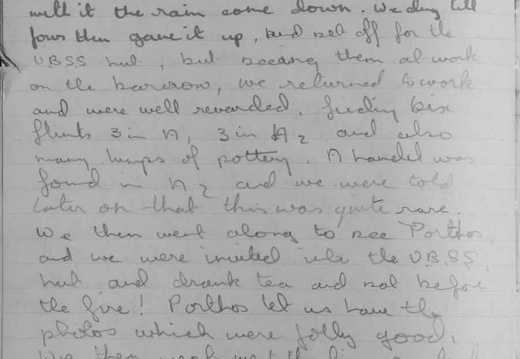 with it the rain came down. We dug till
four then gave it up, and set off for the
U.B.S.S hut, but seeing them at work
on the barrow, we returned to work
and were well rewarded, finding six
flints 3 in A, 3 in A2 and also
many lumps of pottery. A handel was
found in A2 and we were told
later on that this was quite rare.
We then went along to see Porthos,
and we were invited into the U.B.S.S.
hut and drank tea and sat before
the fire! Porthos let us have the
photos which were jolly good.
We then went